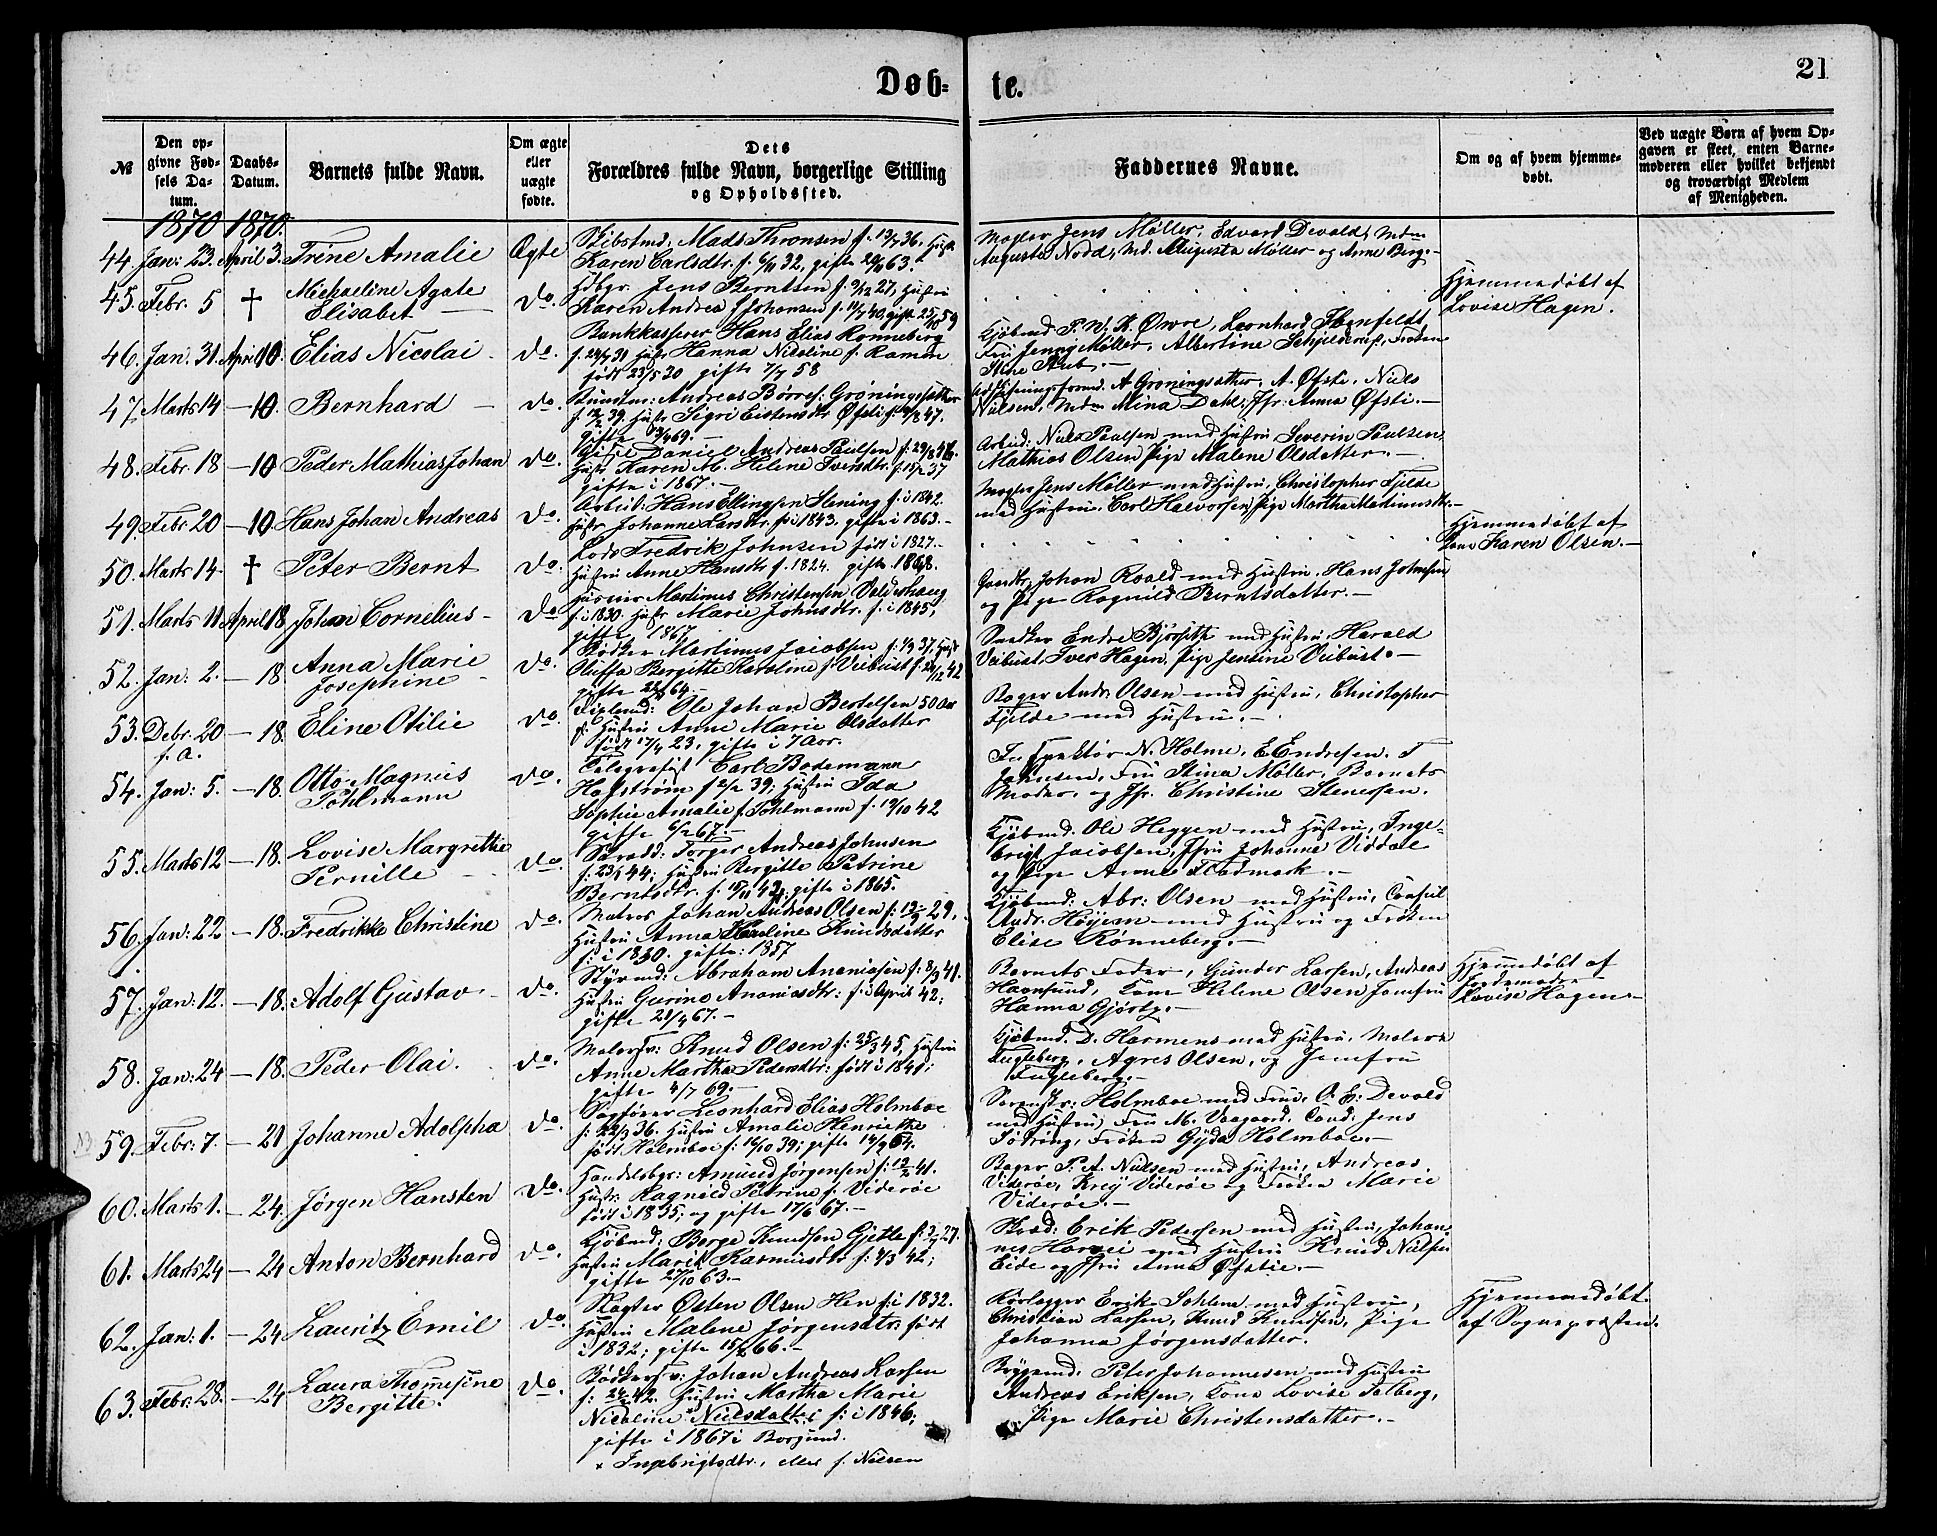 Døb-
te.
21
№
Den op-
givne Fød-
sels Da-
tum.
Daabs-
Datum.
Barnets fulde Navn.
Om ægte
eller
uægte
fødte.
Dets
Forældres fulde Navn, borgerlige Stilling
og Opholdssted.
Faddernes Navne.
Om og af hvem hjemme-
døbt.
Ved uægte Børn af hvem Op-
gaven er skeet, enten Barne-
moderen eller hvilket bekjendt
og troværdigt Medlem
af Menigheden.
1870 1870.
44. Jan: 23. April 3. Trine Amalie Ægte
Mads Thronsen f. 13/7 36. Hustr
Karen Carlsdtr. f. 6/11 32, gifte 20/11 63.
Mægler Jens Møller, Edvard Devold, Mdm
Augusta Nodd, Md. Augusta Møller og Anne Berg.
45. Febr. 5 † Michaeline Agate
Elisabet do.
Hdbgr. Jens Berntsen f. 9/12 27, Hustru
Karen Andrea f. Johansen f. 11/7 40, gift 25/10 59
Hjemmedøbt af
Lovise Hagen.
46. Jan. 31. April 10. Elias Nicolai do.
Bankkasserer Hans Elias Rønneberg
f. 24/7 31 Hustr Hanna Nicoline f. Ramm
født 23/5 30 gifte 7/7 58
Kjøbmd P. W. K. Øwre, Leonhard
Fru Jenny Møller, Albertine Schjelderup, Frøken
Stine Aub.
47. Marts 14 — 10. Bernhard do.
Andreas Børres: Grøningsæther
f. 12/2 39, Hustr Sigri Eistensdtr Øfsti f. 47.
gifte 69.
A Grøningsæther, A. Øfsti, Niels
Nielsen, Mdm Mina Dahl, Jfr. Anna Øfsti.
48. Febr. 18 — 10 Peder Mathias Johan do.
Daniel Andreas Paulsen f. 29/8 46.
Hustr Karen M. Helene Ivensdtr. f. 37
gifte i 1867.
Arbeid: Niels Paulsen med Hustru Severin Paulsen
Mathias Olsen Pige Malene Olsdatter.
49. Febr. 20 — 10 Hans Johan Andreas do.
Arbeid: Hans Ellingsen Slening f. i 1842.
Hustr Johanne Larsdtr. f. i 1843. gifte i 1863.
Mægler Jens Møller med Hustru, Christopher Fjelde
med Hustru. Carl Halvorsen, Pige Martha Martinusdtr.
50. Marts 14. † Peter Bernt do.
Lods Fredrik Johnsen født i 1827.
Hustru Anne Hansdtr f. 1824. gifte 1868.
Hjemmedøbt af
Kone Karen Olsen.
51. Marts 11 April 18. Johan Cornelius do
Martinus Christensen Valderhaug
f. i 1830. Hustr Marie Johnsdtr. f. i 1845,
gifte 1867
Johan Roald med Hustru. Hans Johnsen
og Pige Ragnild Berntsdatter.
52. Jan: 2. — 18. Anna Marie
Josephine do.
Bødker Martinus Jacobsen f. 1/9 37, Hust
Oluffa Bergitte Karoline f. Veibust f. 24/12 42
gifte 64.
Snedker Endre Bjørseth med Hustru, Harald
Veibust, Iver Hagen, Pige Jensine Veibust.
53. Debr. 20 — 18. Eline Otilie do.
f. A.
Ole Johan Bertelsen 50 Aar
Hustru Anne Marie Olsdatter
født 17/4 23, gifte i 7 Aar.
Bager Andr. Olsen med Hustru, Christopher
Fjelde med Hustru.
54. Jan: 5. — 18. Otto Magnus
Pöhlmann do.
Telegrafist Carl Bodemann
Hafstrøm f 2/2 39; Hustru Ida
Sophie Amalie f. Pöhlmann f. 12/10 42
gifte 6/2 67.
Inspektør N. Holme, E. Endresen. T
Johnsen, Fru Stina Møller, Barnets
Moder, og Jfr. Christine Stenersen.
55. Marts 12 — 18. Lovise Margrethe
Pernille do.
Skrædd: Torger Andreas Johnsen
f. 23/5 44; Hustru Bergitte Petrine
Berntsdtr. f. 15/11 42; gifte i 1865.
Kjøbmd. Ole Heggen med Hustru, Inge-
brigt Jacobsen, Jfru Johanne Viddal
og Pige Anne Flodmark.
56. Jan: 22 — 18. Fredrikke Christine do.
Matros Johan Andreas Olsen f: 12/9 29,
Hustru Anna Pauline Knudsdatter
f: i 1830. gifte: 1857
Kjøbmd: Abr: Olsen med Hustru, Consul
Andr. Høyem med Hustru og Frøken
Elise Rønneberg.
57. Jan: 12. — 18. Adolf Gustav do.
Styrmd: Abraham Ananiasen f: 8/3 41.
Hustru Gurine Ananiasdtr: f: i April 42;
gifte 21/4 67.
Barnets Fader, Gunder Larsen, Andreas
Havnsund, Kone Helene Olsen Jomfru
Hanna Gjørtz.
Hjemmedøbt af
Jordemoder
Lovise Hagen.
58. Jan: 24 — 18. Peder Olai. do.
Malersv: Knud Olsen f: 25/3 45, Hustru
Anne Martha Pedersdtr: født i 1841;
gifte 4/7 69.
Kjøbmd. D. Harmens med Hustru, Maler
Fugleberg, Agnes Olsen, og Jomfru
Fugleberg.
59. Febr: 7. — 21. Johanne Adolpha do.
Sagfører Leonhard Elias Holmboe
f: 22/3 36. Hustru Amalie Henriette
født Holmboe f: 16/10 39; gifte 14/9 64.
Sorenskr: Holmboe med Frue, O. E: Devold
med Hustru, Fru M. Vaagaard, Cand: Jens
Søtring, Frøken Gyda Holmboe.
60. Marts 1. — 24. Jørgen Hansten do.
Handelsbgr: Amund Jørgensen f: 12/2 41.
Hustr: Ragnild Petrine f: Viderøe
født i 1835; og gifte 17/6 67.
Bager P. A. Nielsen med Hustru, Andreas
Viderøe, Krey Viderøe og Frøken Marie
Viderøe.
61. Marts 24 — 24 Anton Bernhard do.
Kjøbmd: Børge Knudsen Gjette f: 3/7 27.
Hustru Marit Rasmusdtr f: 4/3 42;
gifte 27/10 63.
Skræd: Erik Pedersen med Hustru, Johan-
nes Hareei med Hustru Knud Nielsen
Eide og Jfru Anna Øfstie.
62. Jan: 1. — 24 Lauritz Emil do.
Slagter Østen Olsen Hen f: i 1832.
Hustru Malene Jørgensdtr: født
i 1832; gifte 15/2 66.
Rørlægger Erik Sohlem med Hustru,
Christian Larsen, Knud Knudsen, Pige
Johanna Jørgensdatter.
Hjemmedøbt
af Sognepræsten.
63. Febr: 28. — 24 Laura Thomesine
Bergitte. do.
Bødkersv: Johan Andreas Larsen
f: 24/2 42. Hustru Martha Marie
Nicoline × Nielsdatter f: i 1846;
gifte i 1867 i Borgund.
× Ingebrigtsdtr., eller f. Nielsen
Bryggemd. Peter Johannesen med Hustru
Andreas Eriksen, Kone Lovise Solberg,
Pige Marie Christensdatter.